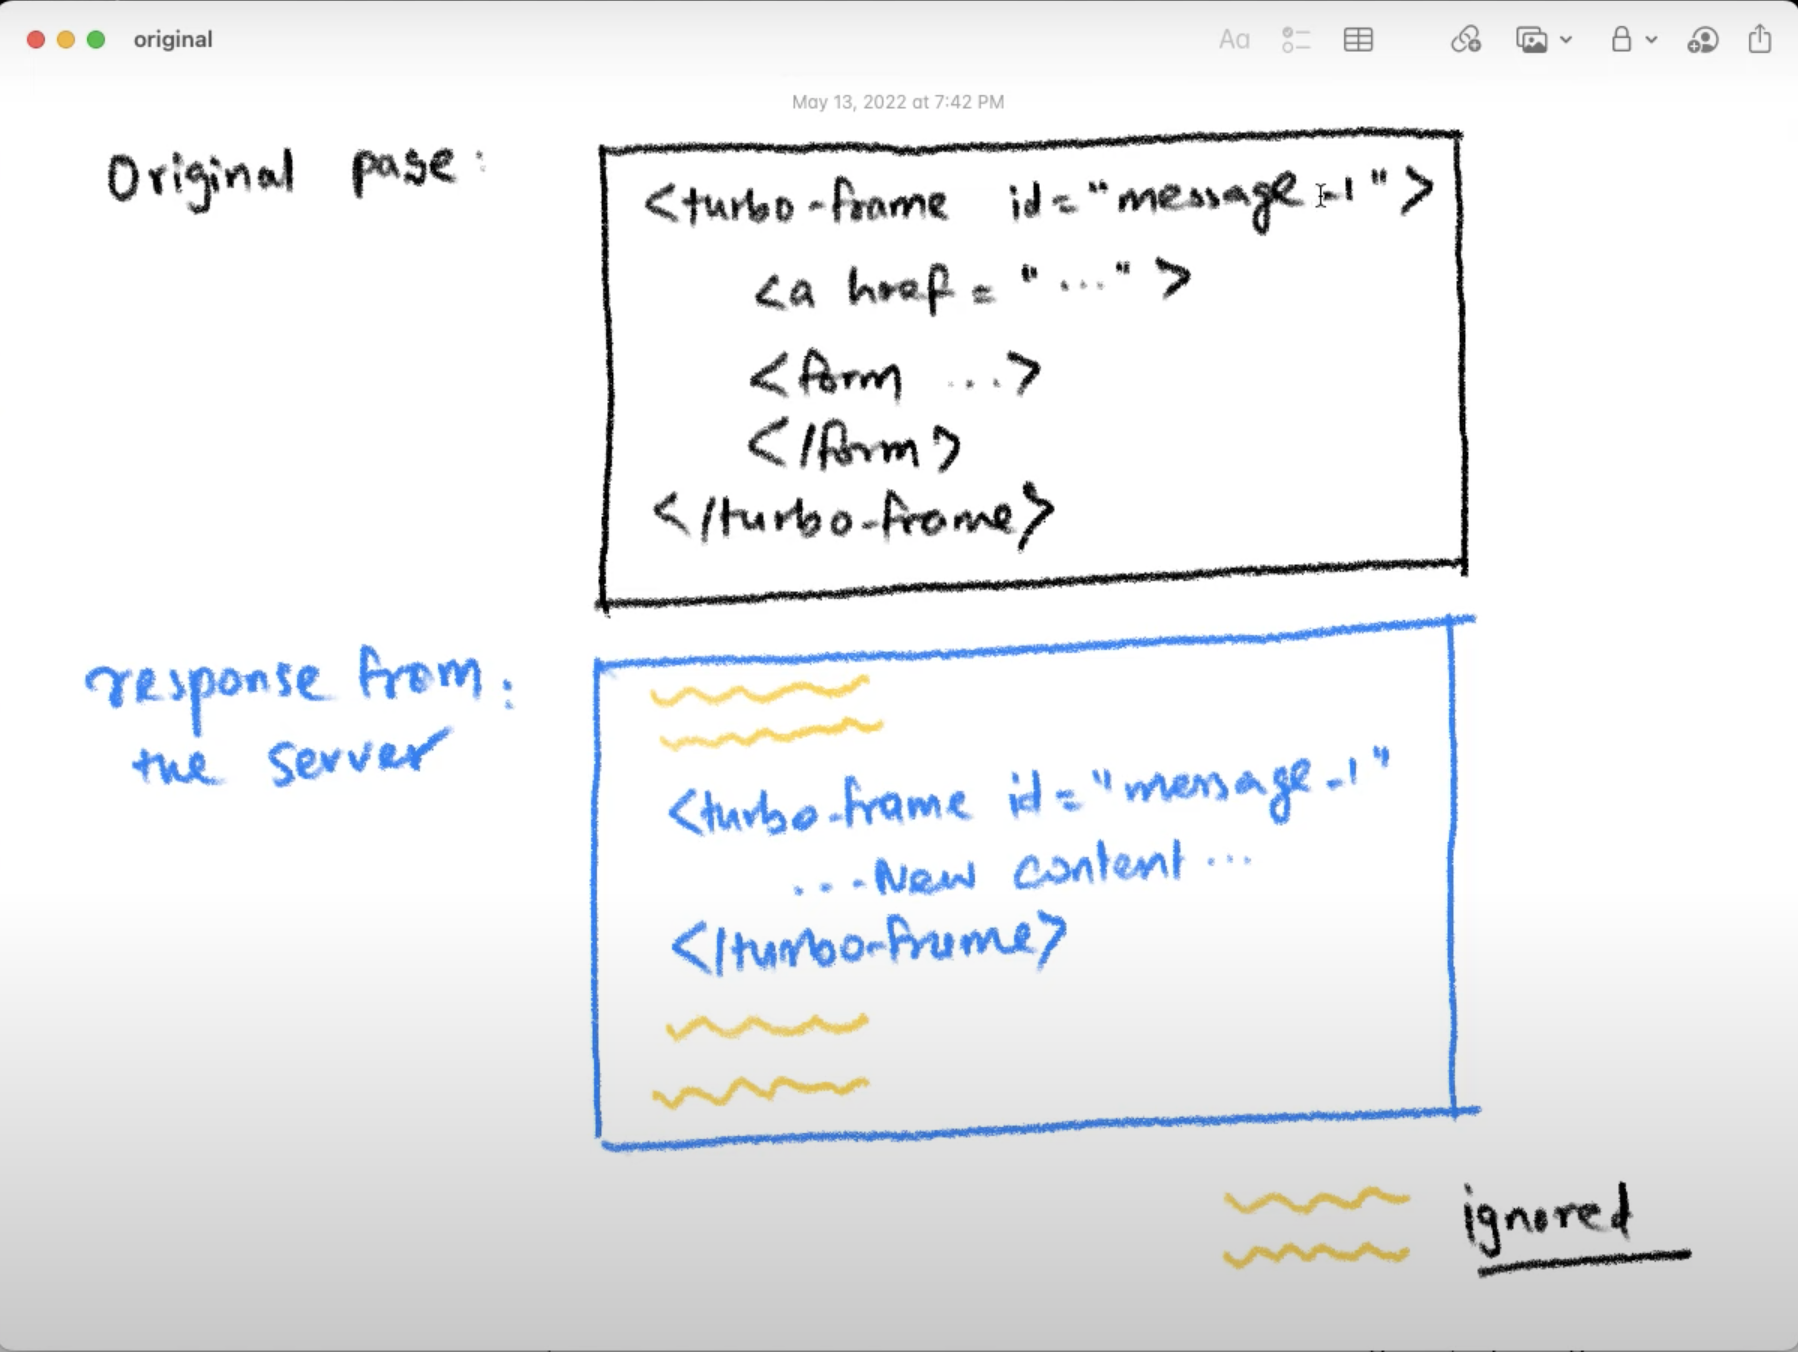 original
Aa
May 13, 2022 at 7:42 PM
Original page:
<turbo-frame id="message-1">
<a href="...">
<form ...>
</form>
</turbo-frame>
response from:
the server
<turbo-frame id="message-1"
...New content...
</turbo-frame>
ignored